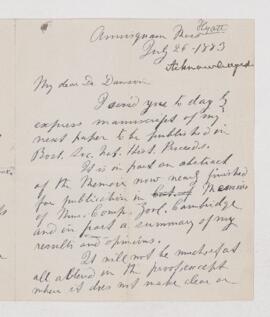 Hyatt
Annisquam Mass
July 26 - 1883
Acknowledged
My dear Dr Dawson
I send you to day by
express manuscript of my
next paper to be published in
Bost. Soc. Nat. Hist. Proceeds.
It is in part an abstract
of the Memoir now nearly finished
for publication in Memoirs
of Mus. Comp. Zool. Cambridge
and in part a summary of my
results and opinions.
It will not be much if at
all altered in the proof except
where it does not make clear or